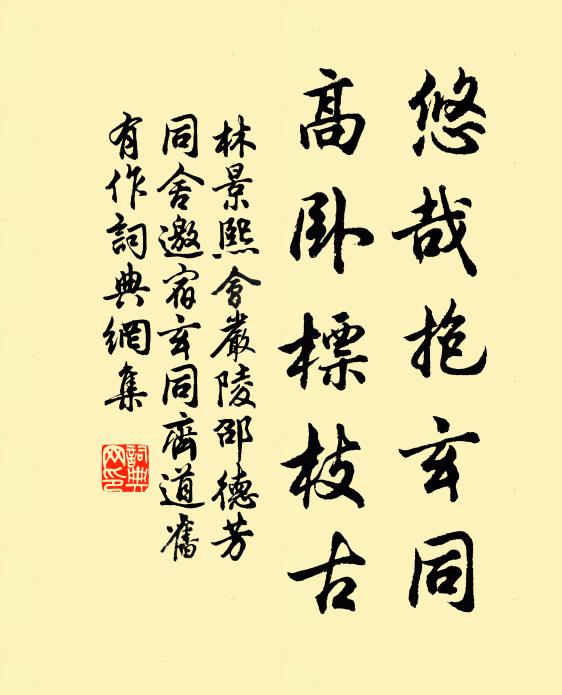 悠哉抱玄同
高卧標枝古
林景熙會嚴陵邵德芳
同舍邀宿玄同齋道舊
有作詞典網集
詞典網印